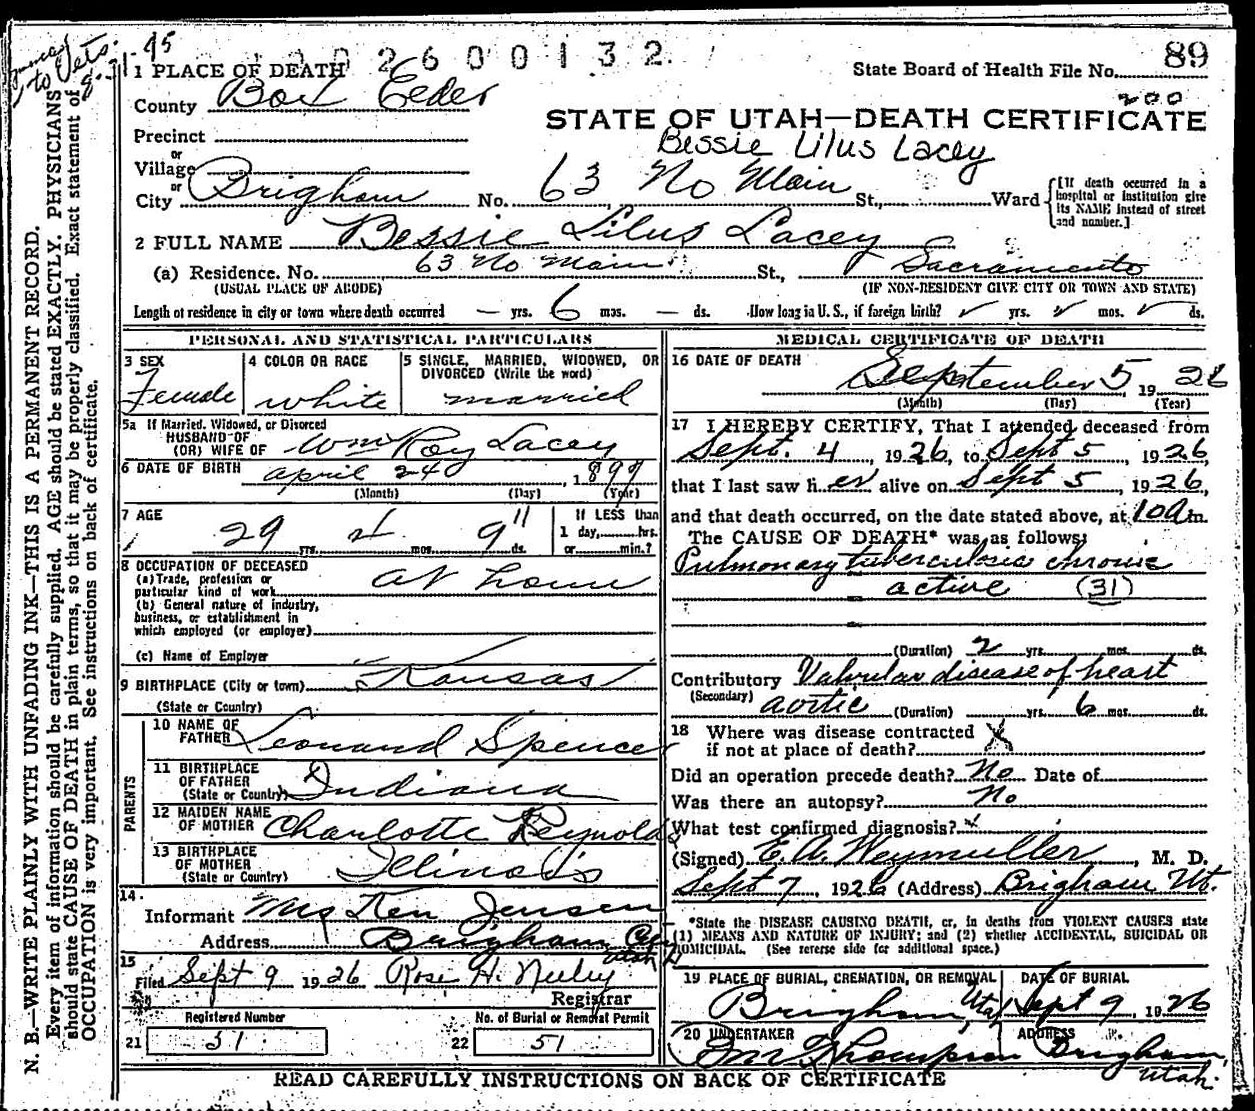 2600132
89
State Board of Health File No.
200
1 PLACE OF DEATH
County Box Elder
STATE OF UTAH—DEATH CERTIFICATE
Bessie Lilus Lacey
Precinct
or
Village
or
City Brigham No. 63 No Main St., Ward
[If death occurred in a
hospital or institution give
its NAME instead of street
and number.]
2 FULL NAME Bessie Lilus Lacey
(a) Residence. No. 63 No Main St., Sacramento
(USUAL PLACE OF ABODE) (IF NON-RESIDENT GIVE CITY OR TOWN AND STATE)
Length of residence in city or town where death occurred — yrs. 6 mos. — ds. How long in U. S., if foreign birth? yrs. mos. ds.
PERSONAL AND STATISTICAL PARTICULARS
3 SEX
Female
4 COLOR OR RACE
white
5 SINGLE, MARRIED, WIDOWED, OR
DIVORCED (Write the word)
married
5a If Married, Widowed, or Divorced
HUSBAND OF
(OR) WIFE OF Wm Roy Lacey
6 DATE OF BIRTH April 24, 1897
(Month) (Day) (Year)
7 AGE
29 yrs. 4 mos. 9 11 ds.
If LESS than
1 day, hrs.
or min.?
8 OCCUPATION OF DECEASED
(a) Trade, profession or
particular kind of work at home
(b) General nature of industry,
business, or establishment in
which employed (or employer)
(c) Name of Employer
9 BIRTHPLACE (City or town) Kansas
(State or Country)
PARENTS
10 NAME OF
FATHER Leonard Spencer
11 BIRTHPLACE
OF FATHER
(State or Country) Indiana
12 MAIDEN NAME
OF MOTHER Charlotte Reynolds
13 BIRTHPLACE
OF MOTHER
(State or Country) Illinois
14
Informant Mrs Ken Jensen
Address Brigham City
Utah
15
Filed Sept 9 1926 Rose H. Neeley
Registrar
Registered Number
21 51
No. of Burial or Removal Permit
22 51
MEDICAL CERTIFICATE OF DEATH
16 DATE OF DEATH
September 5, 1926
(Month) (Day) (Year)
17 I HEREBY CERTIFY, That I attended deceased from
Sept. 4, 1926, to Sept 5, 1926,
that I last saw her alive on Sept 5, 1926,
and that death occurred, on the date stated above, at 10 a m.
The CAUSE OF DEATH* was as follows:
Pulmonary tuberculosis chronic
active (31)
(Duration) 2 yrs. mos. ds.
Contributory Valvular disease of heart
(Secondary) aortic (Duration) yrs. 6 mos. ds.
18 Where was disease contracted
if not at place of death?
Did an operation precede death? No Date of
Was there an autopsy? No
What test confirmed diagnosis?
(Signed) E. A. Weymuller, M. D.
Sept 7, 1926 (Address) Brigham Ut.
*State the DISEASE CAUSING DEATH, or, in deaths from VIOLENT CAUSES state
(1) MEANS AND NATURE OF INJURY; and (2) whether ACCIDENTAL, SUICIDAL OR
HOMICIDAL. (See reverse side for additional space.)
19 PLACE OF BURIAL, CREMATION, OR REMOVAL
Brigham, Utah
DATE OF BURIAL
Sept 9, 1926
20 UNDERTAKER
Thompson
ADDRESS
Brigham,
Utah.
READ CAREFULLY INSTRUCTIONS ON BACK OF CERTIFICATE
N. B.—WRITE PLAINLY WITH UNFADING INK—THIS IS A PERMANENT RECORD.
Every item of information should be carefully supplied. AGE should be stated EXACTLY. PHYSICIANS
should state CAUSE OF DEATH in plain terms, so that it may be properly classified. Exact statement of
OCCUPATION is very important. See instructions on back of certificate.